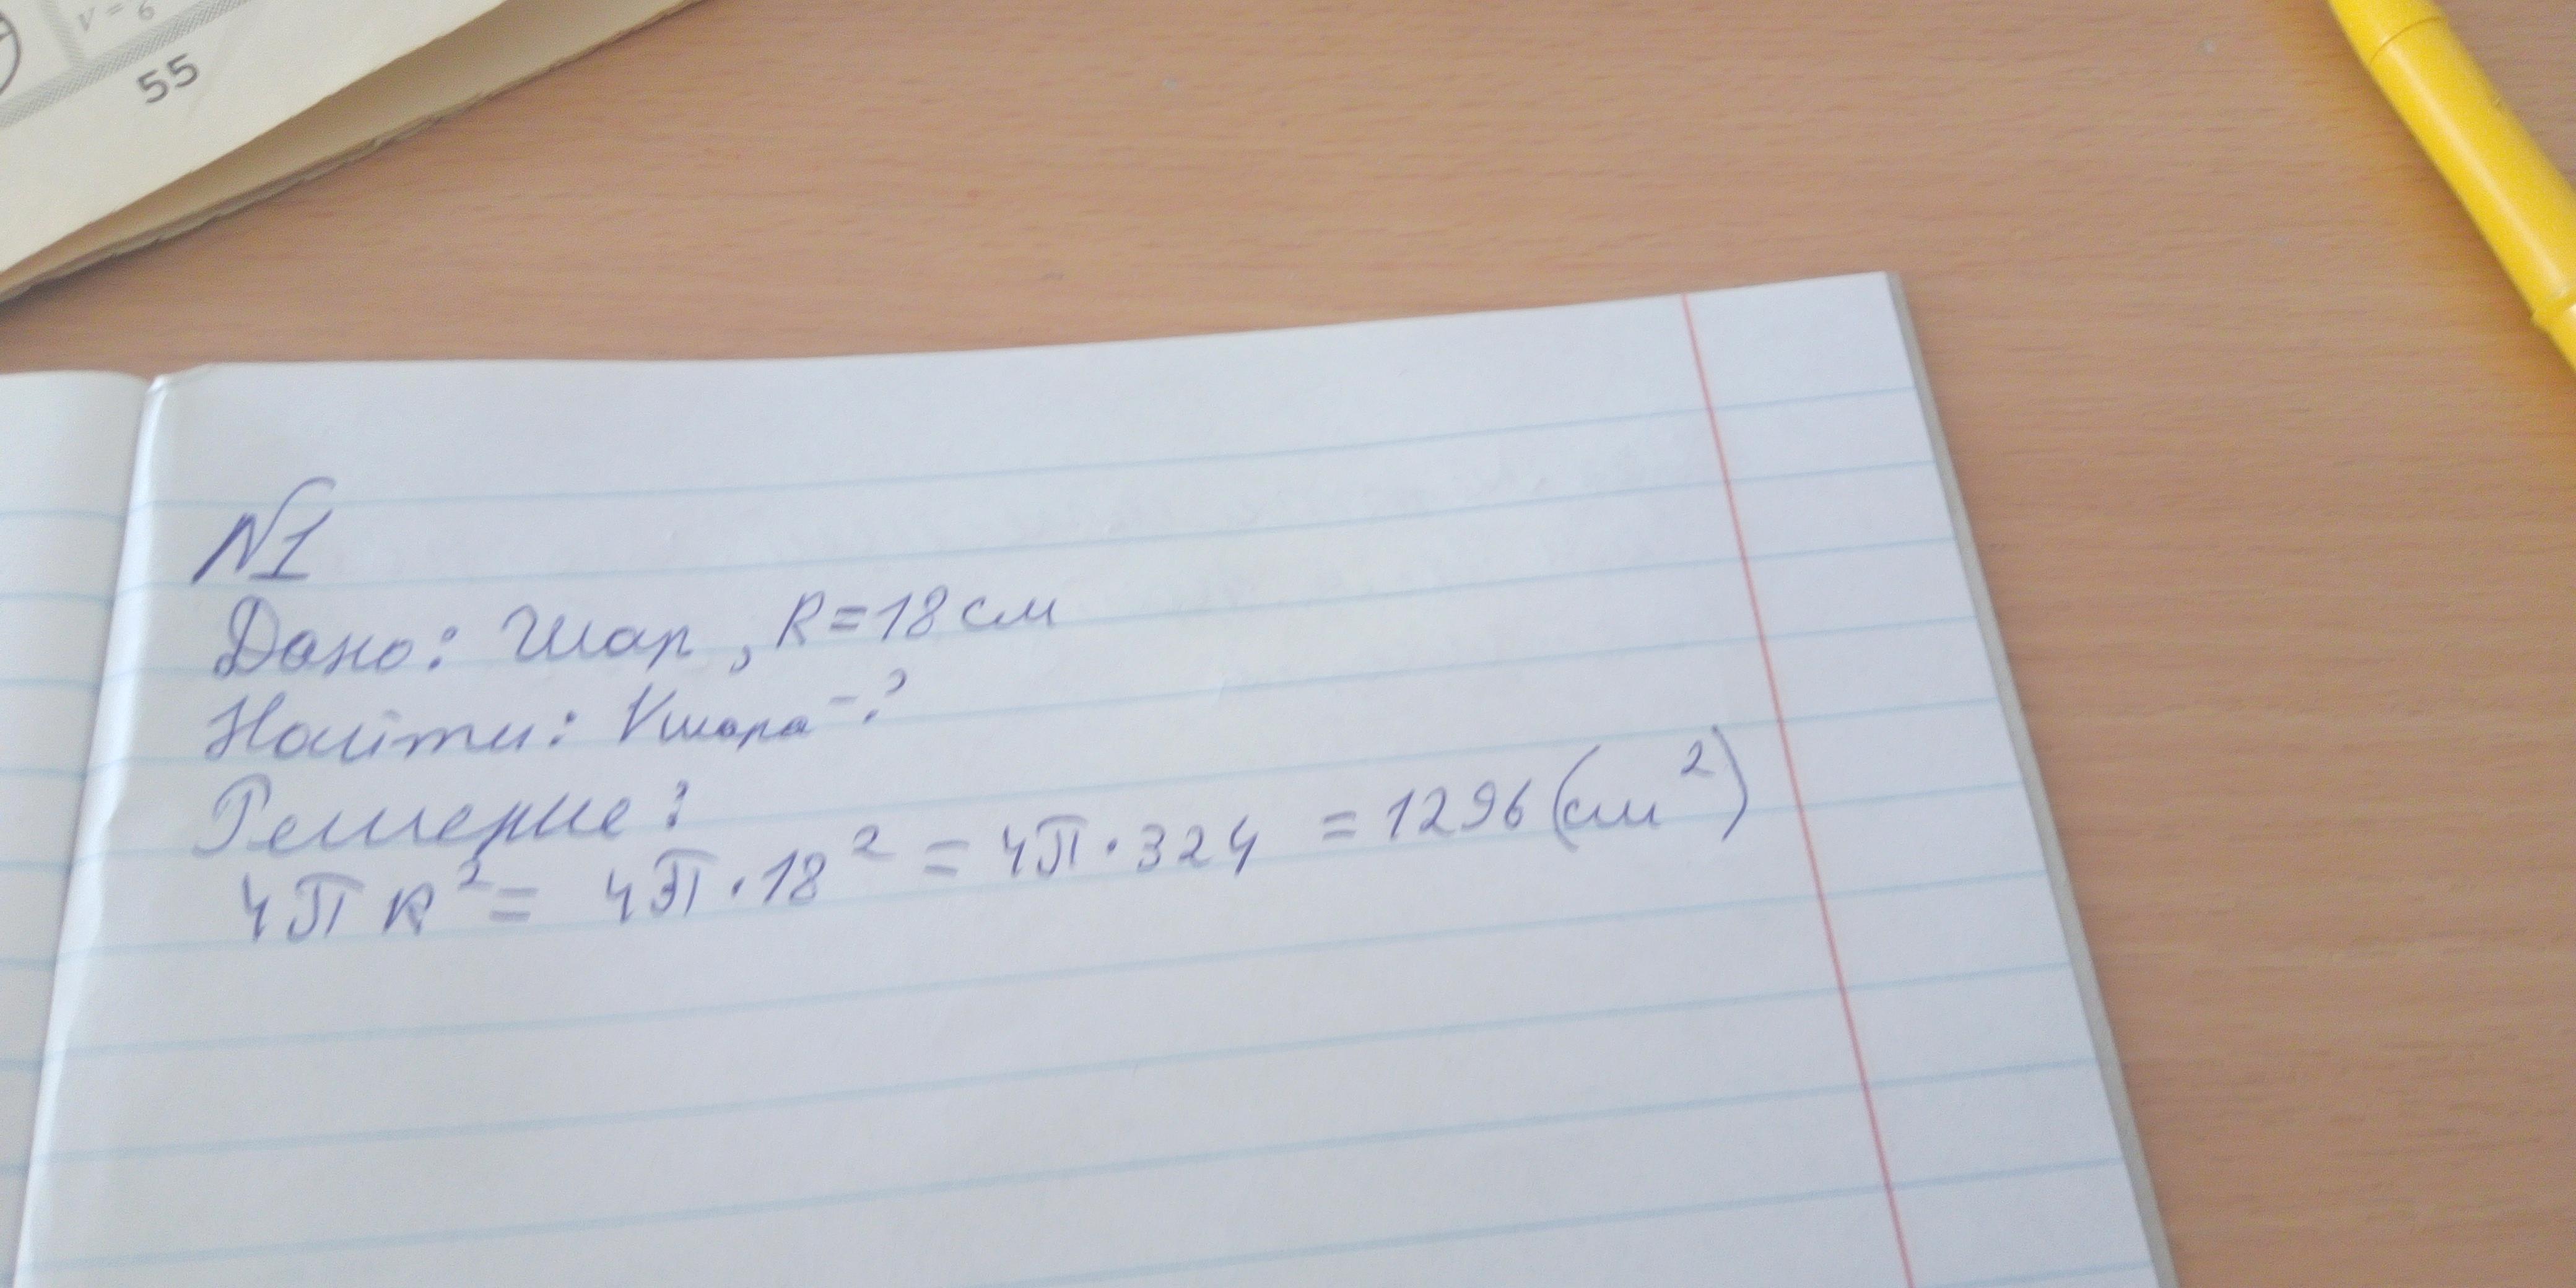 V = 6
55
№1
Дано: Шар, R=18 см
Найти: Vшара -?
Решение:
4π R² = 4π · 18² = 4π · 324 = 1296 (см²)